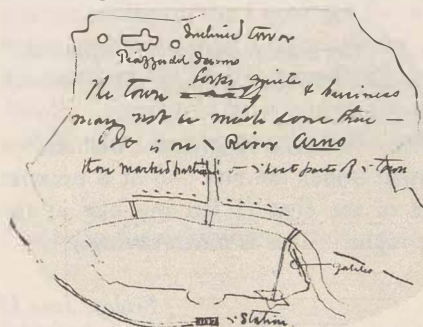 Inclined tower
Piazza del Duomo
The town looks quiete & business
may not be much done there —
It is on River Arno
those marked part best parts of town
galileo
Station